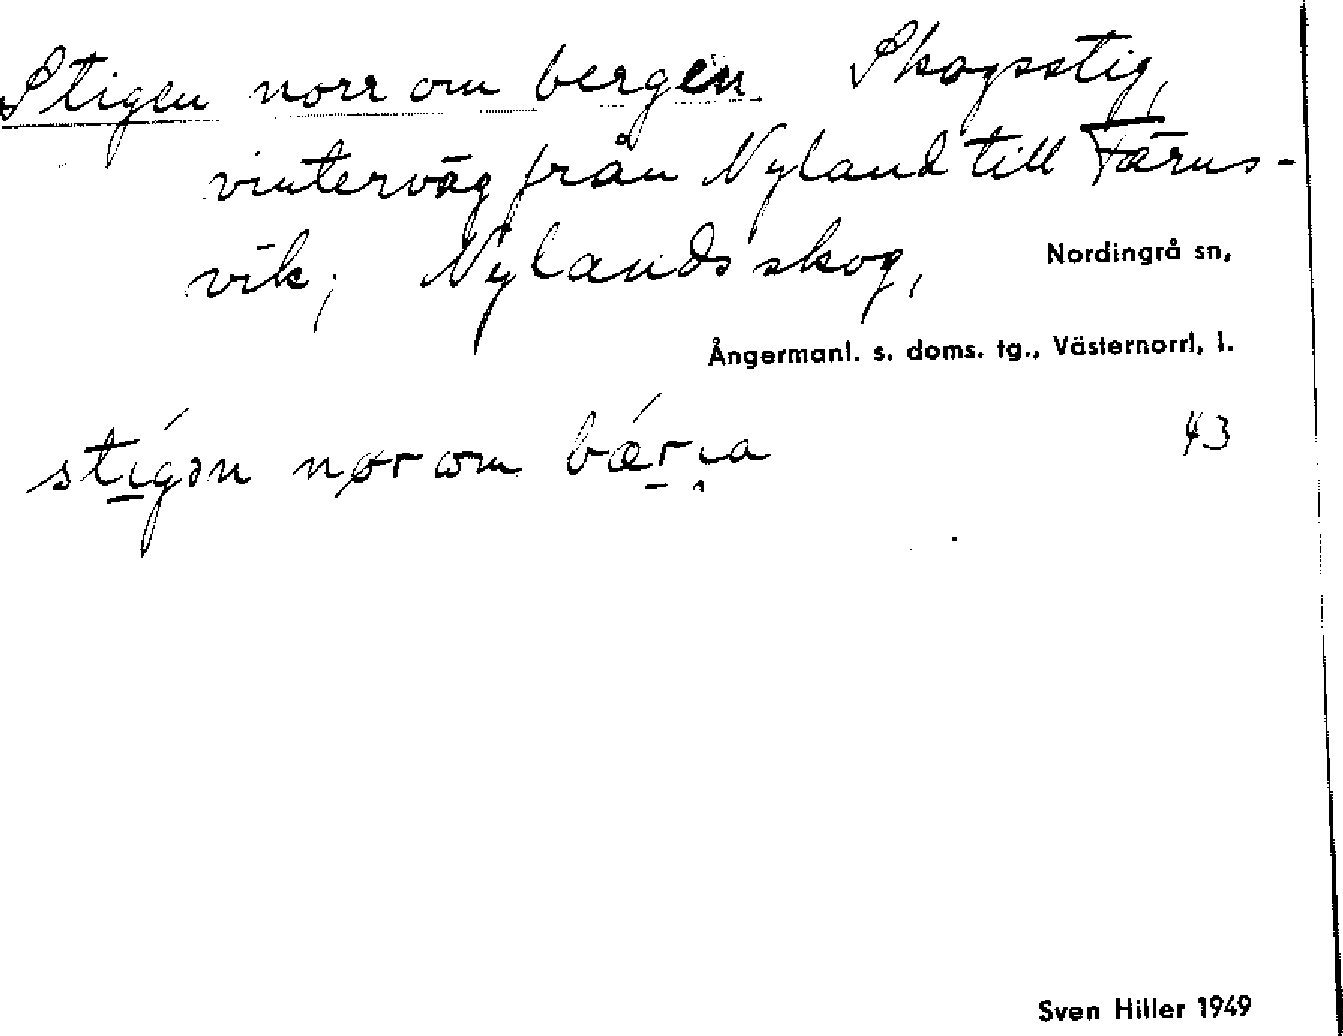 Stigen norr om bergen Skogsstig,
vinterväg från Nyland till Tärns-
vik; Nylands skog, Nordingrå sn,
Ångermanl. s. doms. tg., Västernorrl. l.
stígən nør om bǽrı̣a 43
Sven Hiller 1949